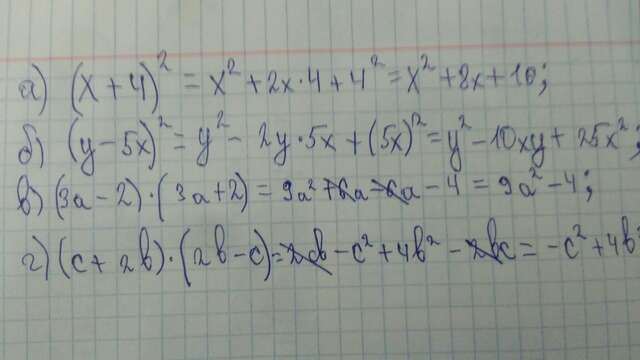 а) (x + 4)² = x² + 2x·4 + 4² = x² + 8x + 16;
б) (y - 5x)² = y² - 2y·5x + (5x)² = y² - 10xy + 25x²;
в) (3a - 2)·(3a + 2) = 9a² + 6a - 6a - 4 = 9a² - 4;
г) (c + 2b)·(2b - c) = 2cb - c² + 4b² - 2bc = -c² + 4b²